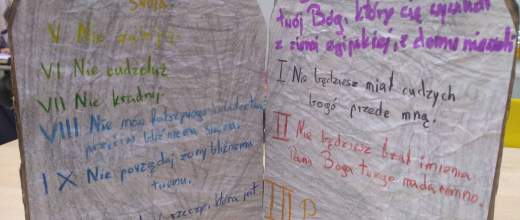 swoją.
V Nie zabij.
VI Nie cudzołóż
VII Nie kradnij.
VIII Nie mów fałszywego świadectwa
przeciw bliźniemu swemu.
IX Nie pożądaj żony bliźniego
twego.
rzeczy, która jest
twój Bóg, który cię wywiódł
z ziemi egipskiej, z domu niewoli
I Nie będziesz miał cudzych
bogó przede mną.
II Nie będziesz brał imienia
Pana Boga twego nadaremno.
III P